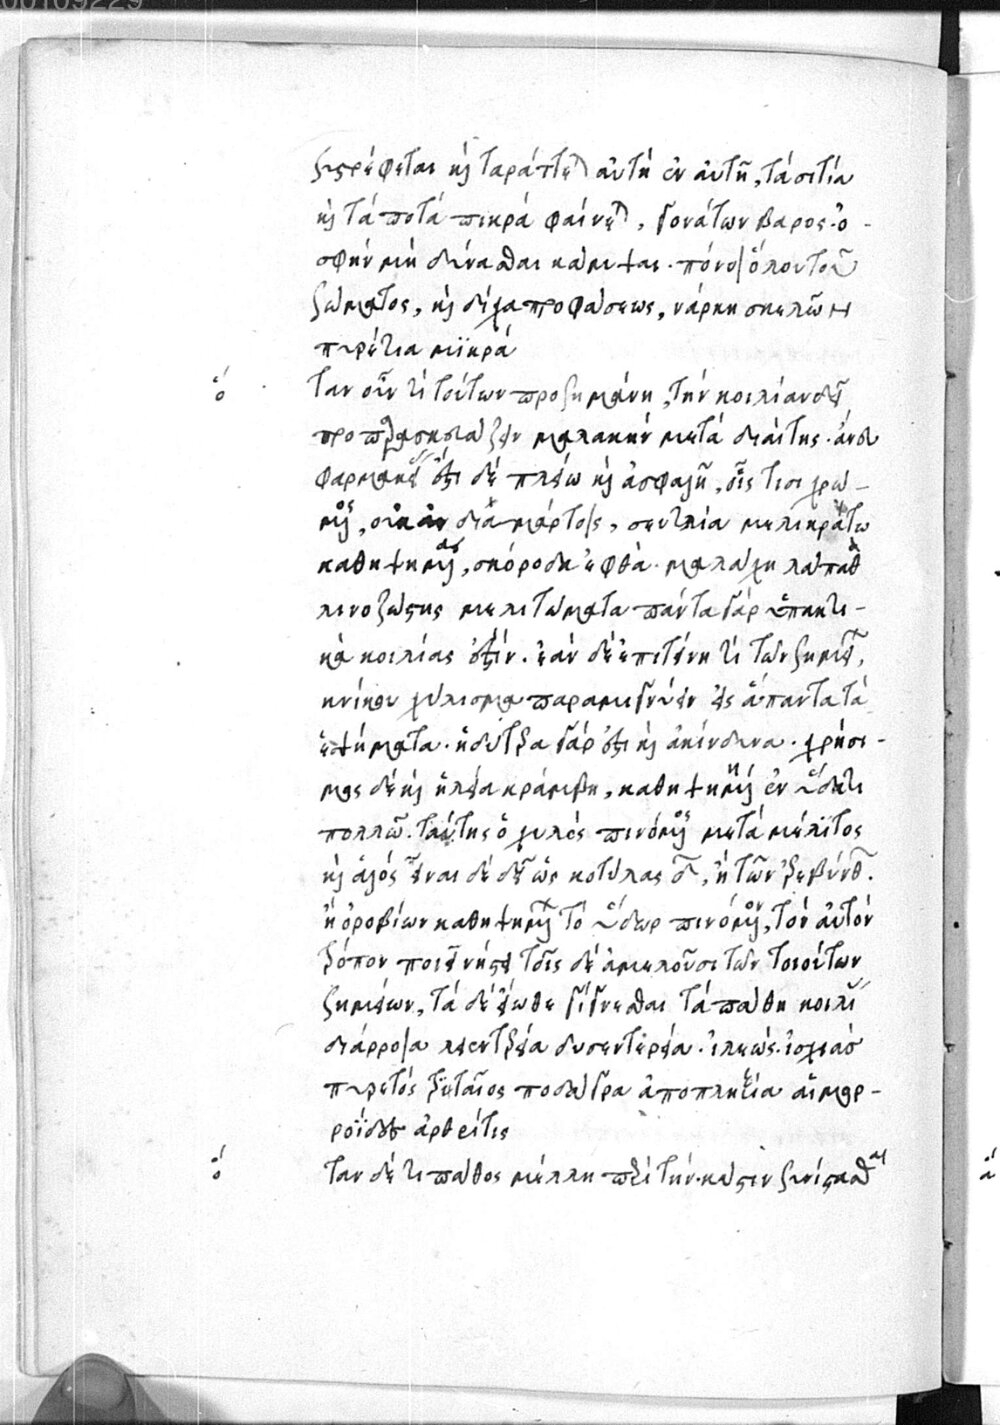 στρέφεται καὶ ταράττεται αὐτὴ ἐν αὐτῇ, τὰ σιτία
καὶ τὰ ποτὰ πικρὰ φαίνεται, γονάτων βάρος. ὀ-
σφὴν μὴ δύνασθαι κάμψαι. πόνοι ὅλου τοῦ
σώματος, καὶ δίχα προφάσεως, νάρκη σκελῶν
πυρέτια μϊκρά
ὅταν οὖν τὶ τούτων προσημαίνη, τὴν κοιλίαν δεῖ
παρασκευάζειν μαλακὴν μετὰ διαίτης. ἄνευ
φαρμακείας ἔστι δὲ πλείω καὶ ἀσφαλῆ, οἷς τισι χρώ-
μενος, οὐκ ἂν διαμάρτοις, σευτλία μελικράτω
καθηψημένας, σκόροδα ἑφθά. μαλάχη λάπαθα
λινοζῶστις μελιτώματα πάντα γὰρ ὑπακτι-
κὰ κοιλίας ἐστίν. ἐὰν δὲ ἐπιτείνη τὶ τῶν σημείων,
κνίκου χύλισμα παραμιγνύειν εἰς ἅπαντα τὰ
ἑψήματα. ἡδύτερα γάρ ἐστι καὶ ἀκίνδυνα. χρήσι-
μος δὲ καὶ ἡ λεία κράμβη, καθηψημένη ἐν ὕδατι
πολλῶ. ταύτης ὁ χυλὸς πινόμενος μετὰ μέλϊτος
καὶ ἁλός εἶναι δὲ δεῖ ὡς κοτύλας δ, ἢ τῶν ἐρεβίνθων.
ἢ ὀροβίων καθηψημένων τὸ ὕδωρ πινόμενον, τὸν αὐτὸν
τρόπον ποιεῖν τοῖς δὲ ἀμελοῦσι τῶν τοιούτων
σημείων, τάδε εἴωθε γίγνεσθαι τὰ πάθη κοιλίας
διάρροια λειεντερία δυσεντερία. εἰλεώς. ἰσχιὰς
πυρετὸς τριταῖος ποδάγρα ἀποπληξία αἱμορ-
ροΐδες ἀρθρῖτις
ὅταν δέ τι πάθος μέλλη περὶ τὴν κύστιν συνίστασθαι